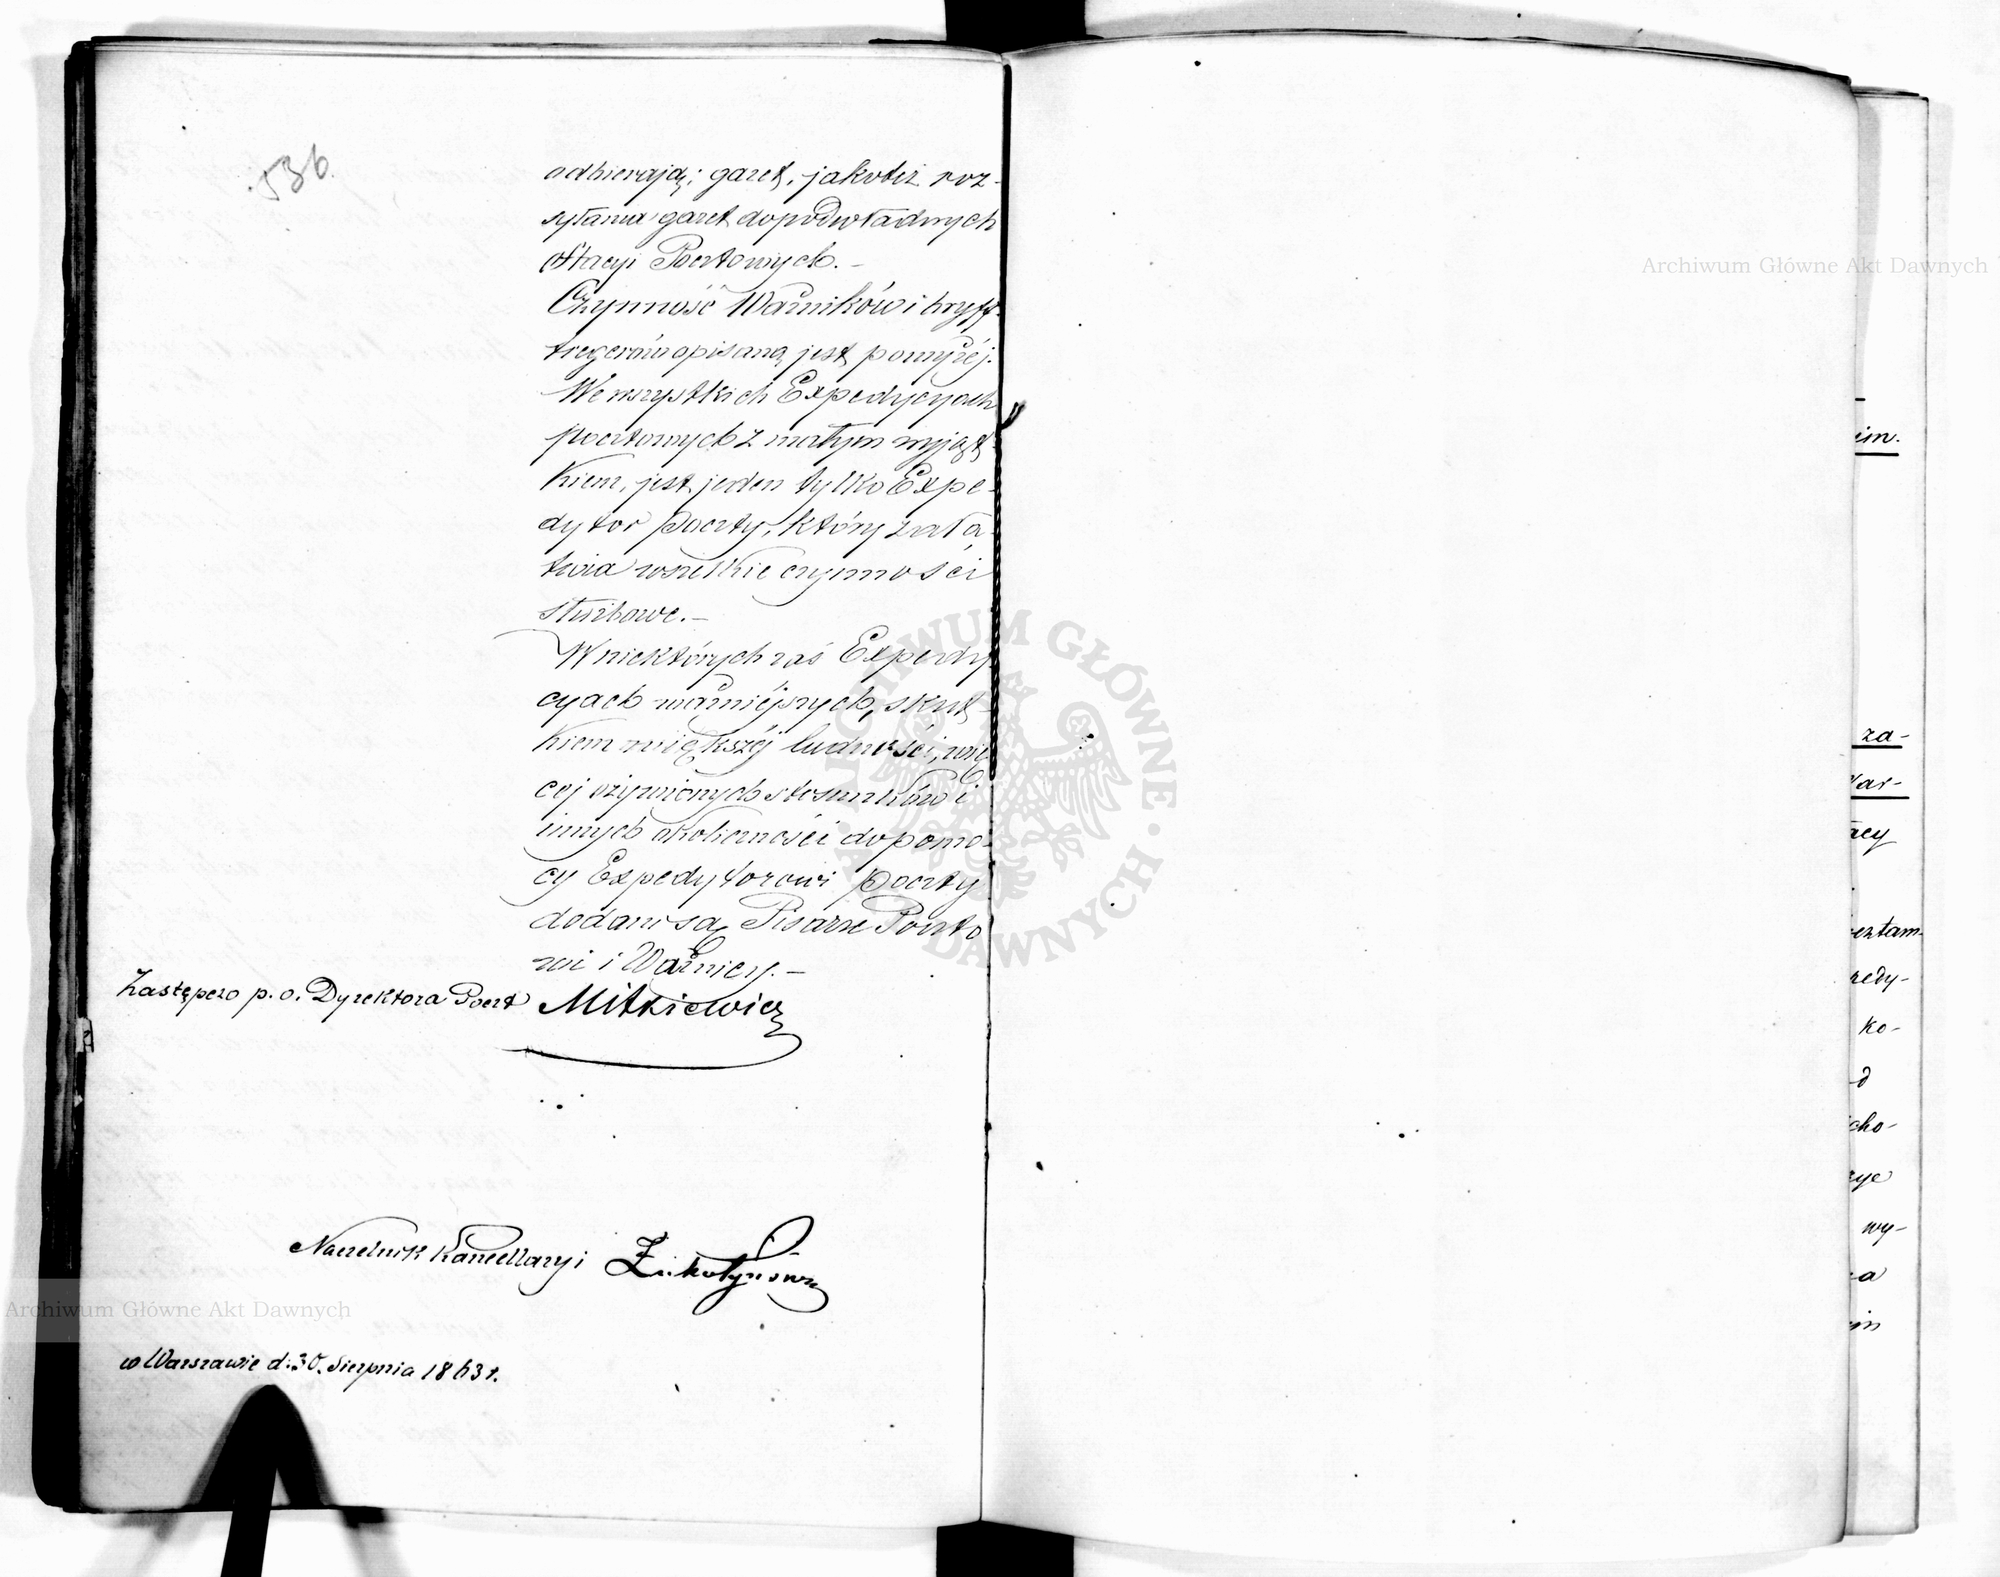 536.
odbierają; gazet, jakoteż roz-
syłania gazet do podwładnych
Stacyi Pocztowych. –
Czynność Woźników i bryff-
tregerów opisaną jest powyżéj.
We wszystkich Expedycyach
pocztowych z małym wyjąt-
kiem, jest jeden tylko Expe-
dytor poczty, który zała-
twia wszelkie czynności
służbowe. –
W niektórych zaś Expedy-
cyach ważniéjszych, skut-
kiem większéj ludności, wię-
cej ożywionych stosunków i
innych okoliczności do pomo-
cy Expedytorowi poczty
dodani są Pisarze Poczto
wi i Woźnicy. –
Zastępca p. o. Dyrektora Poczt Mitkiewicz
Naczelnik Kancellaryi
w Warszawie d. 30. Sierpnia 1863 r.
im.
za-
acy
redy-
ko-
cho-
wy-
Archiwum Główne Akt Dawnych
Archiwum Główne Akt Dawnych
ARCHIWUM GŁÓWNE AKT DAWNYCH